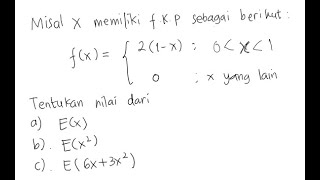 Misal X memiliki f.k.p sebagai berikut:
f(x) = { 2(1-x) ; 0 < x < 1
0 ; x yang lain
Tentukan nilai dari
a) E(x)
b). E(x²)
c). E(6x+3x²)